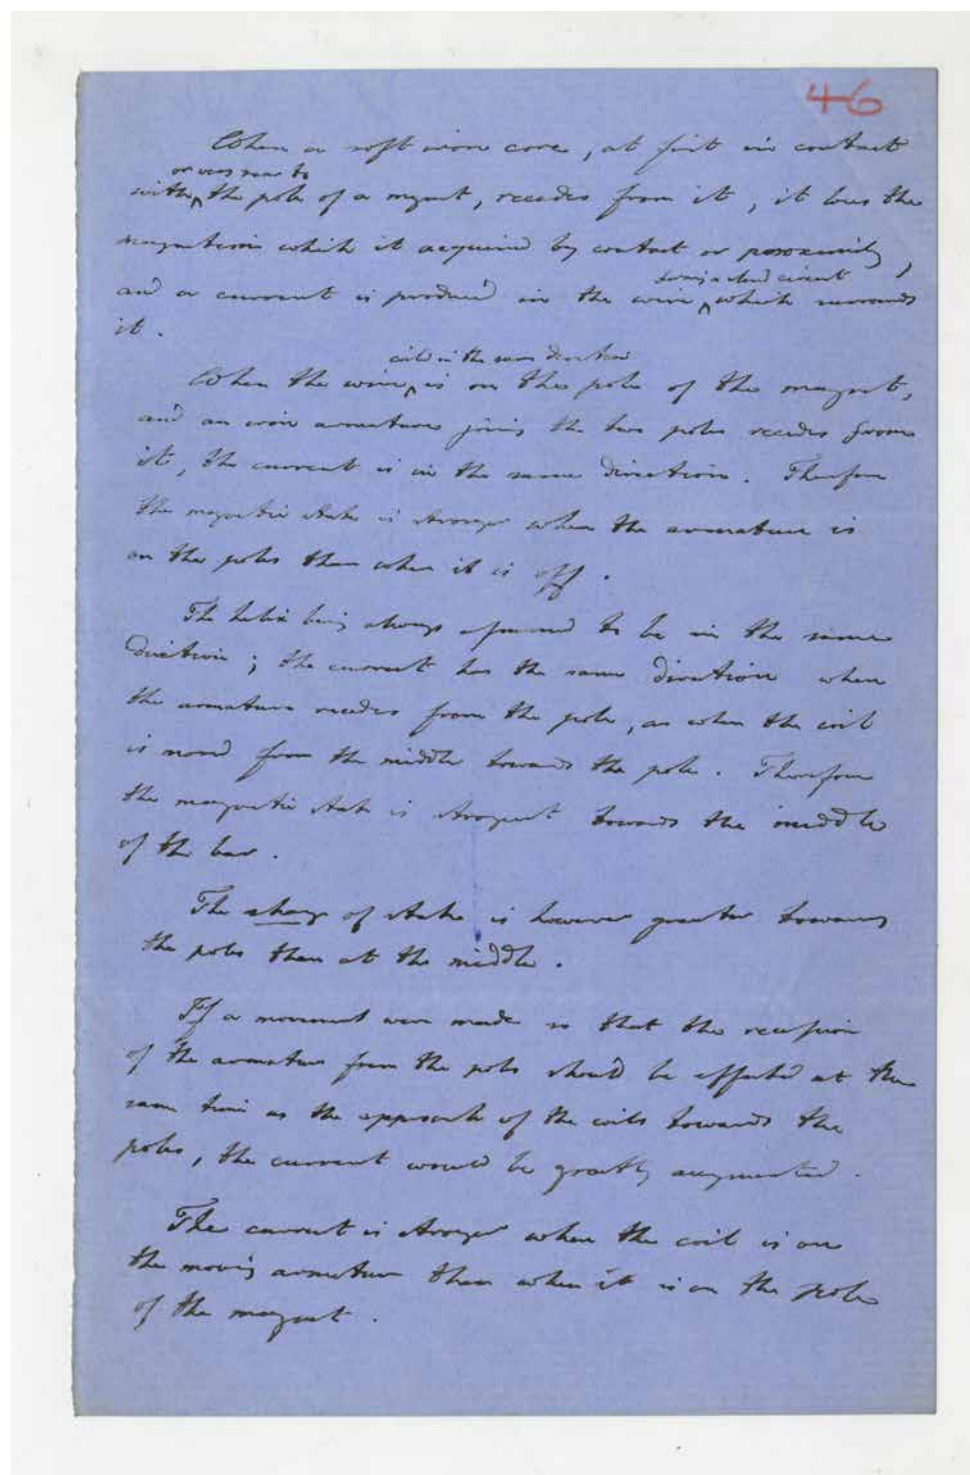 46
When a soft iron core, at first in contact
or very near to
with the pole of a magnet, recedes from it, it loses the
magnetism which it acquired by contact or proximity,
being a closed circuit
and a current is produced in the wire which surrounds
it.
coil in the same direction
When the wire is on the pole of the magnet,
and an iron armature joining the two poles recedes from
it, the current is in the same direction. Therefore
the magnetic state is stronger when the armature is
on the poles than when it is off.
The helix being always supposed to be in the same
direction; the current has the same direction when
the armature recedes from the pole, as when the coil
is moved from the middle towards the pole. Therefore
the magnetic state is strongest towards the middle
of the bar.
The change of state is however greater towards
the poles than at the middle.
If a movement were made so that the recession
of the armature from the poles should be effected at the
same time as the approach of the coils towards the
poles, the current would be greatly augmented.
The current is stronger when the coil is on
the moving armature than when it is on the pole
of the magnet.